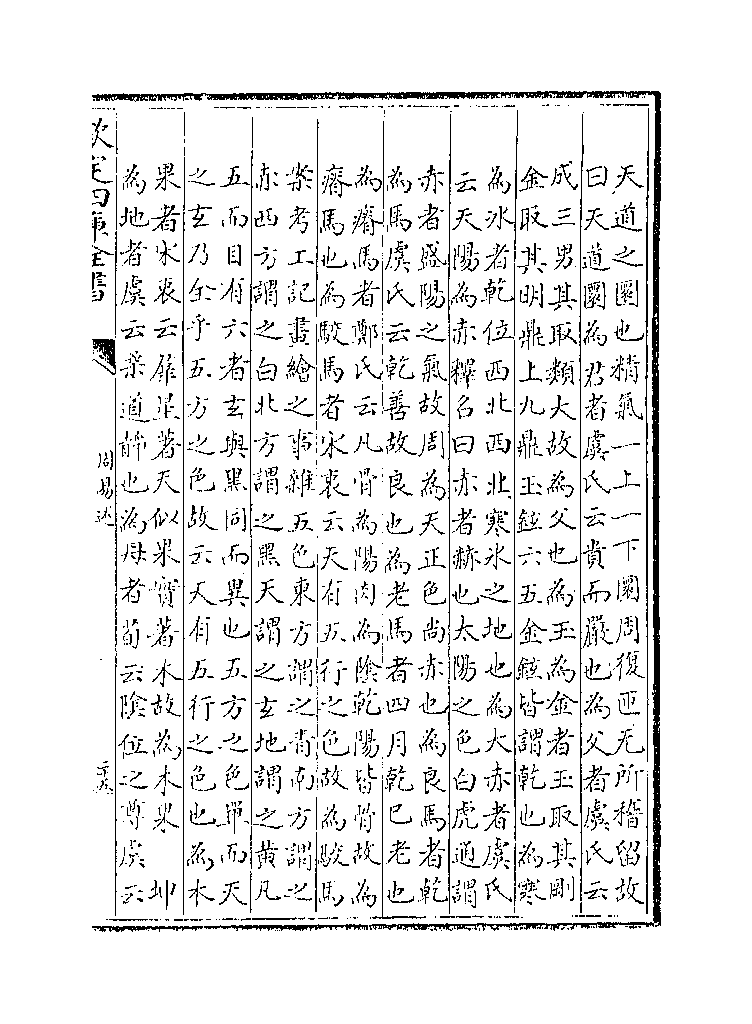 天道之圜也精氣一上一下圜周復匝无所稽留故
曰天道圜為君者虞氏云貴而嚴也為父者虞氏云
成三男其取類大故為父也為玉為金者玉取其剛
金取其明鼎上九鼎玉鉉六五金鉉皆謂乾也為寒
為冰者乾位西北西北寒冰之地也為大赤者虞氏
云天陽為赤釋名曰赤者赫也太陽之色白虎通謂
赤者盛陽之氣故周為天正色尚赤也為良馬者乾
為馬虞氏云乾善故良也為老馬者四月乾巳老也
為瘠馬者鄭氏云凡骨為陽肉為陰乾陽皆骨故為
瘠馬也為駁馬者宋衷云天有五行之色故為駁馬
案考工記畫繪之事雜五色東方謂之青南方謂之
赤西方謂之白北方謂之黑天謂之玄地謂之黄凡
五而目有六者玄與黑同而異也五方之色單而天
之玄乃全乎五方之色故云天有五行之色也為木
果者宋衷云羣星著天似果實著木故為木果　坤
為地者虞云柔道静也為母者荀云陰位之尊虞云
欽定四庫全書
周易述